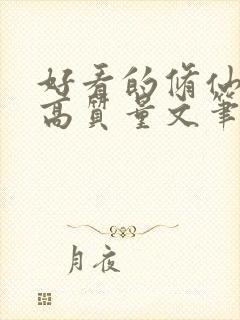 好看的脩仙
高质量文笔
月夜